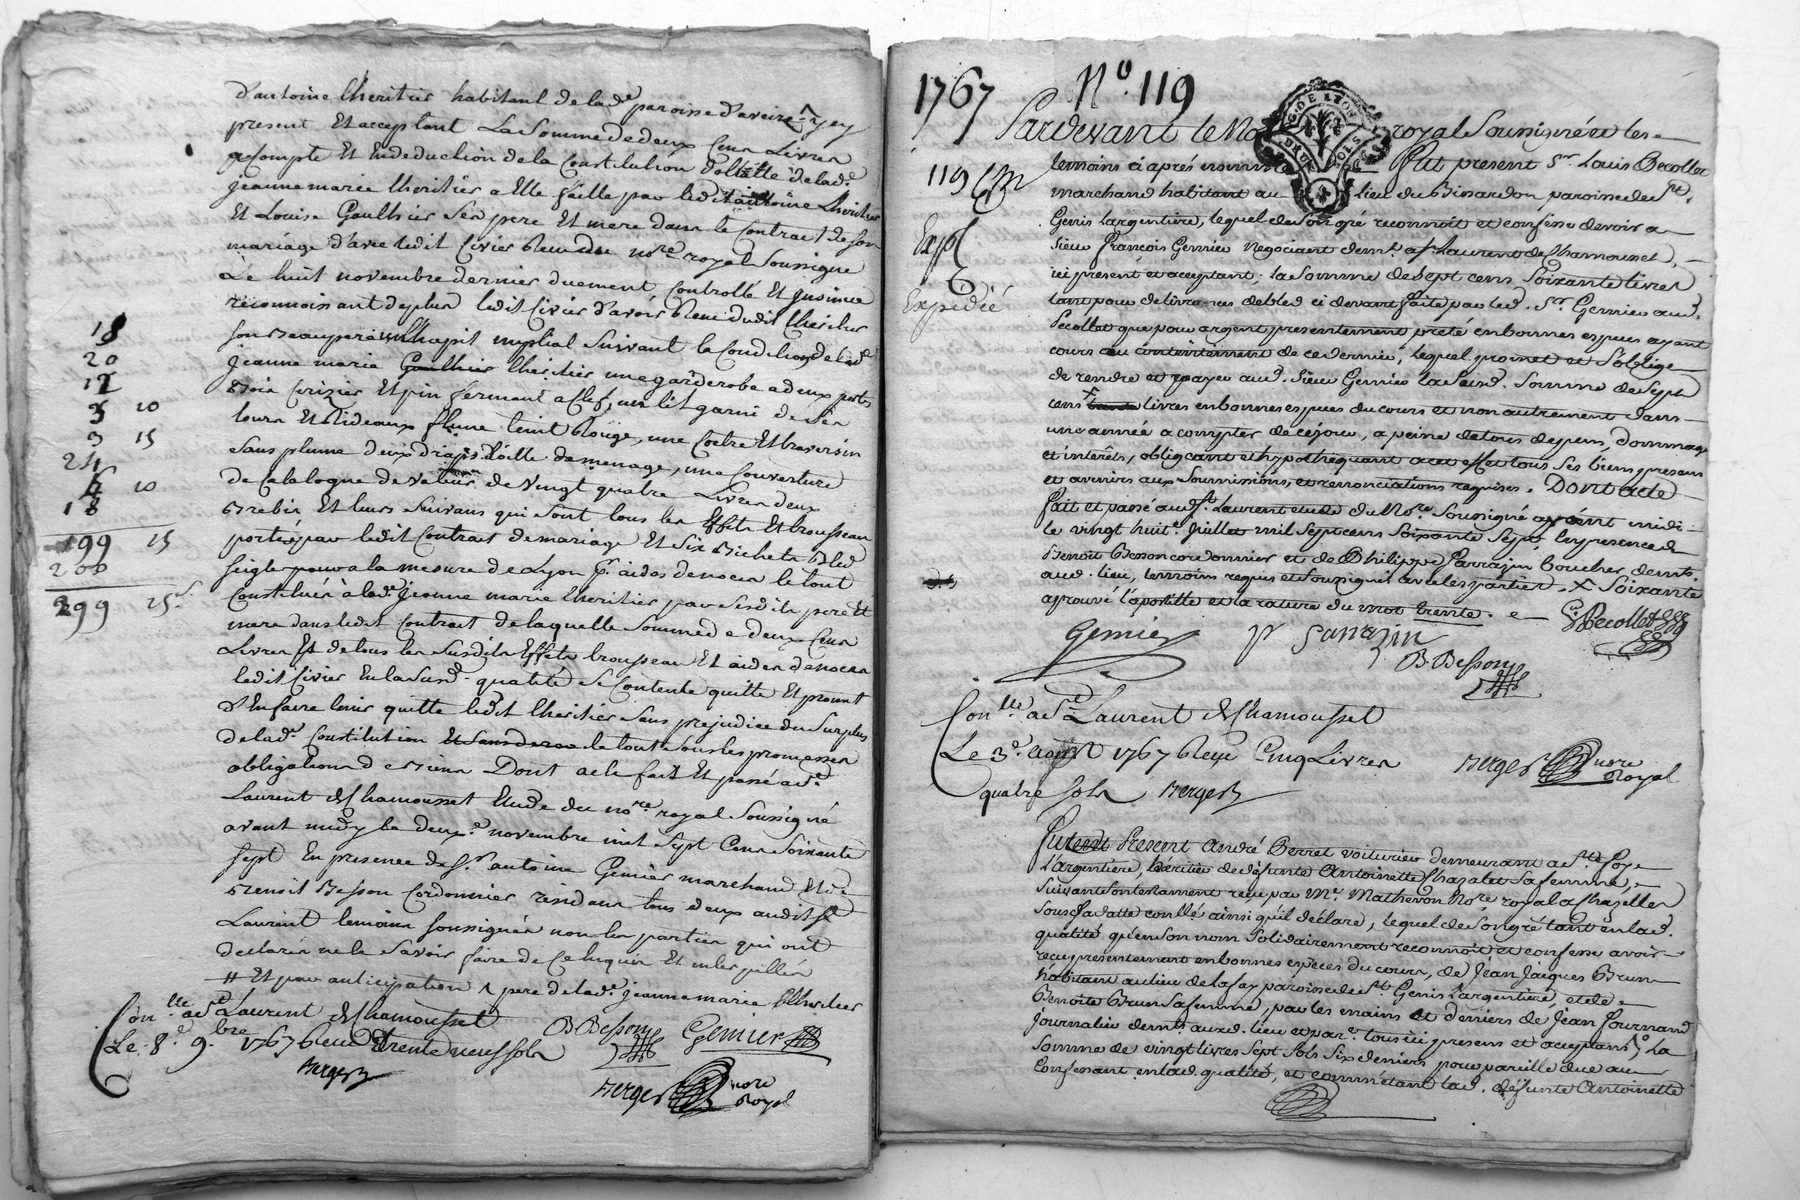 d'antoine Lheritier habitant de lad.e paroisse d'aveize icy
present Et acceptant La Somme de deux Cens Livres
acompte Et En deduction de la Constitution dotalle de lad.e
jeanne marie lheritier a Elle faitte par ledit antoine Lheritier
Et Louise Gaulthier Ses pere Et mere dans le Contrat de son
mariage d'avec ledit Civier Receu du no.re royal Soussigné
Le huit novembre dernier duement Controllé Et jnsinué
reconnoissant deplus ledit Civier d'avoir Receu dudit lheritier
son Beaupere
jeanne marie Gaulthier lheritier une garderobe a deux portes
Bois Cerizier Et pin fermant a Clef, un lit garni de Ses
tours Et Rideaux teint Rouge, une Coetre Et traversin
Sans plume deux draps toille de menage, une Couverture
de Catalogne de valeur de vingt quatre Livres deux
Brebis Et leurs Suivans qui Sont tous les Effets Et trousseau
portés par ledit Contrat de mariage Et Six Bichets Bled
seigle pour a la mesure de Lyon p.r aides de noces le tout
Constitué à lad.e jeanne marie lheritier par Sesdits pere Et
mere dans ledit Contrat de laquelle Somme de deux Cens
Livres Et de tous les Susdits Effets trousseau Et aides de noces
ledit Civier En la Susd. qualité Se Contente quitte Et promet
d'En faire tenir quitte ledit lheritier Sans prejudice du Surplus
de lad.e Constitution le tout Sous les promesses
obligations de Biens Dont acte fait Et passé a S.t
Laurent de Chamousset Etude du no.re royal Soussigné
avant midy le deux.e novembre mil Sept Cens Soixante
sept En presence de S.r antoine Gemier marchand Et de
Benoit Besson Cordonnier residans tous deux audit S.t
Laurent temoins soussignés non les parties qui ont
declarés ne le Savoir faire de Ce Enquis Et interpellés
# Et par anticipation pere de lad.e jeanne marie Lheritier
Con.lle a S.t Laurent de Chamousset
Le 8.e 9.bre 1767 Receu trente neuf sols
Berger
B Besson Gemier
Berger nore
Royal
18
20
12
3 10
3 15
24
10
18
199 15
200
299 15 s
1767 N.o 119
119
Expédié
Pardevant le No royal Soussigné et les
temoins ci aprés nommés Fut present S.r Louis Becollet
marchand habitant au Lieu du Binardon paroisse de S.t
Genis Largentière, lequel de Son gré reconnoit et confesse devoir a
Sieur François Gemier Negociant dem.t a S.t Laurent de Chamousset,
ici présent et acceptant, la Somme de Sept cens Soixante livres
tant pour delivrances de bled ci devant faite par led. S.r Gemier aud.
Becollet que pour argent presentement preté en bonnes especes ayant
cours au contentement de ce dernier, lequel promet et S'oblige
de rendre et payer aud. Sieur Gemier la Susd. Somme de Sept
cens X trente livres en bonnes especes du cours et non autrement dans
une année a compter de ce jour, a peine de tous depens, dommages
et intérêts, obligeant et hypothequant a cet effet tous Ses biens presens
et avenirs aux Soumissions, et renonciations requises. Dont acte
Fait et passé aud. S.t Laurent etude du No.re Soussigné avant midi
le vingt huit.e Juillet mil Sept cens Soixante Sept en presence de
Benoît Besson cordonnier et de Philippe Sarrazin boucher dem.ts
aud. lieu, temoins requis et Soussignés avec les parties. X Soixante
aprouvé l'apostille et la rature du mot trente.
Becollet
Gemier P Sarrazin
B Besson
Con.lle a S.t Laurent de Chamousset
Le 3.e Aoust 1767 Receu Cinq Livres
quatre sols Berger
Berger nore
Royal
Fut Present André Berret voiturier demeurant a S.te Foy
l'argentière, héritier de défunte Antoinette Chazalet Sa femme,
Suivant Son testament reçu par M.e Mathevon No.re royal a Chazelles
Sous Sa datte conllé ainsi qu'il déclare, lequel de Son gré tant en lad.
qualité qu'en Son nom Solidairement reconnoit et confesse avoir
reçu presentement en bonnes espèces du cours, de Jean Jacques Brun
habitant au lieu de la fay paroisse de S.t Genis L'argentière, et de
Benoite Brun Sa femme, par les mains et deniers de Jean Journaud
journalier dem.t aud. lieu et par.e tous ici presens et acceptans, La
Somme de vingt livres Sept Sols Six deniers pour pareille due au
Confessant en lad. qualité, et comm'étant lad. défunte Antoinette